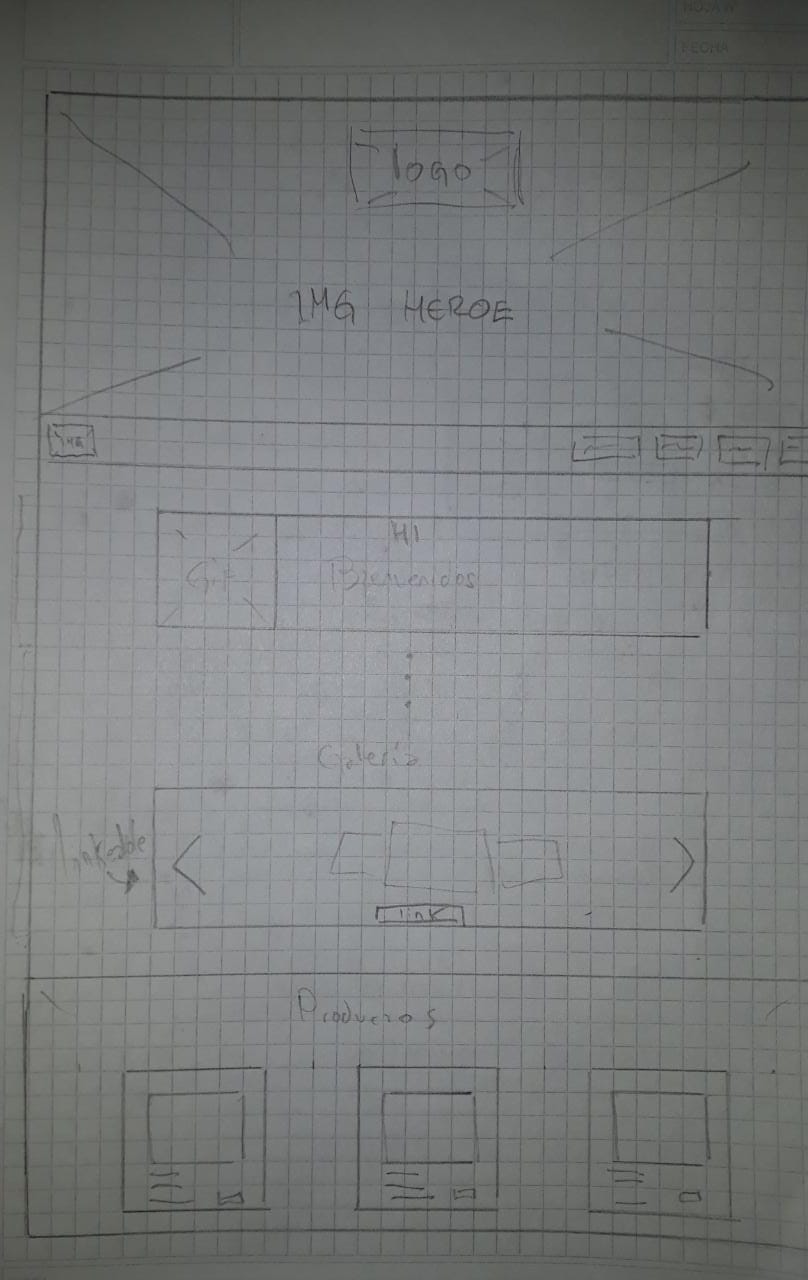 HOJA Nº
FECHA
logo
IMG HEROE
H1
Gif
Bienvenidos
Galería
linkeable
link
Productos